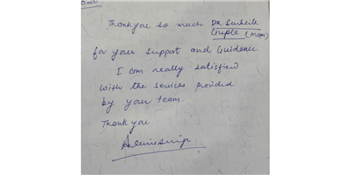 Thank you so much Dr.
Gupta (Mam)
for your support and Guidance
I am really satisfied
with the services provided
by your team.
Thank you